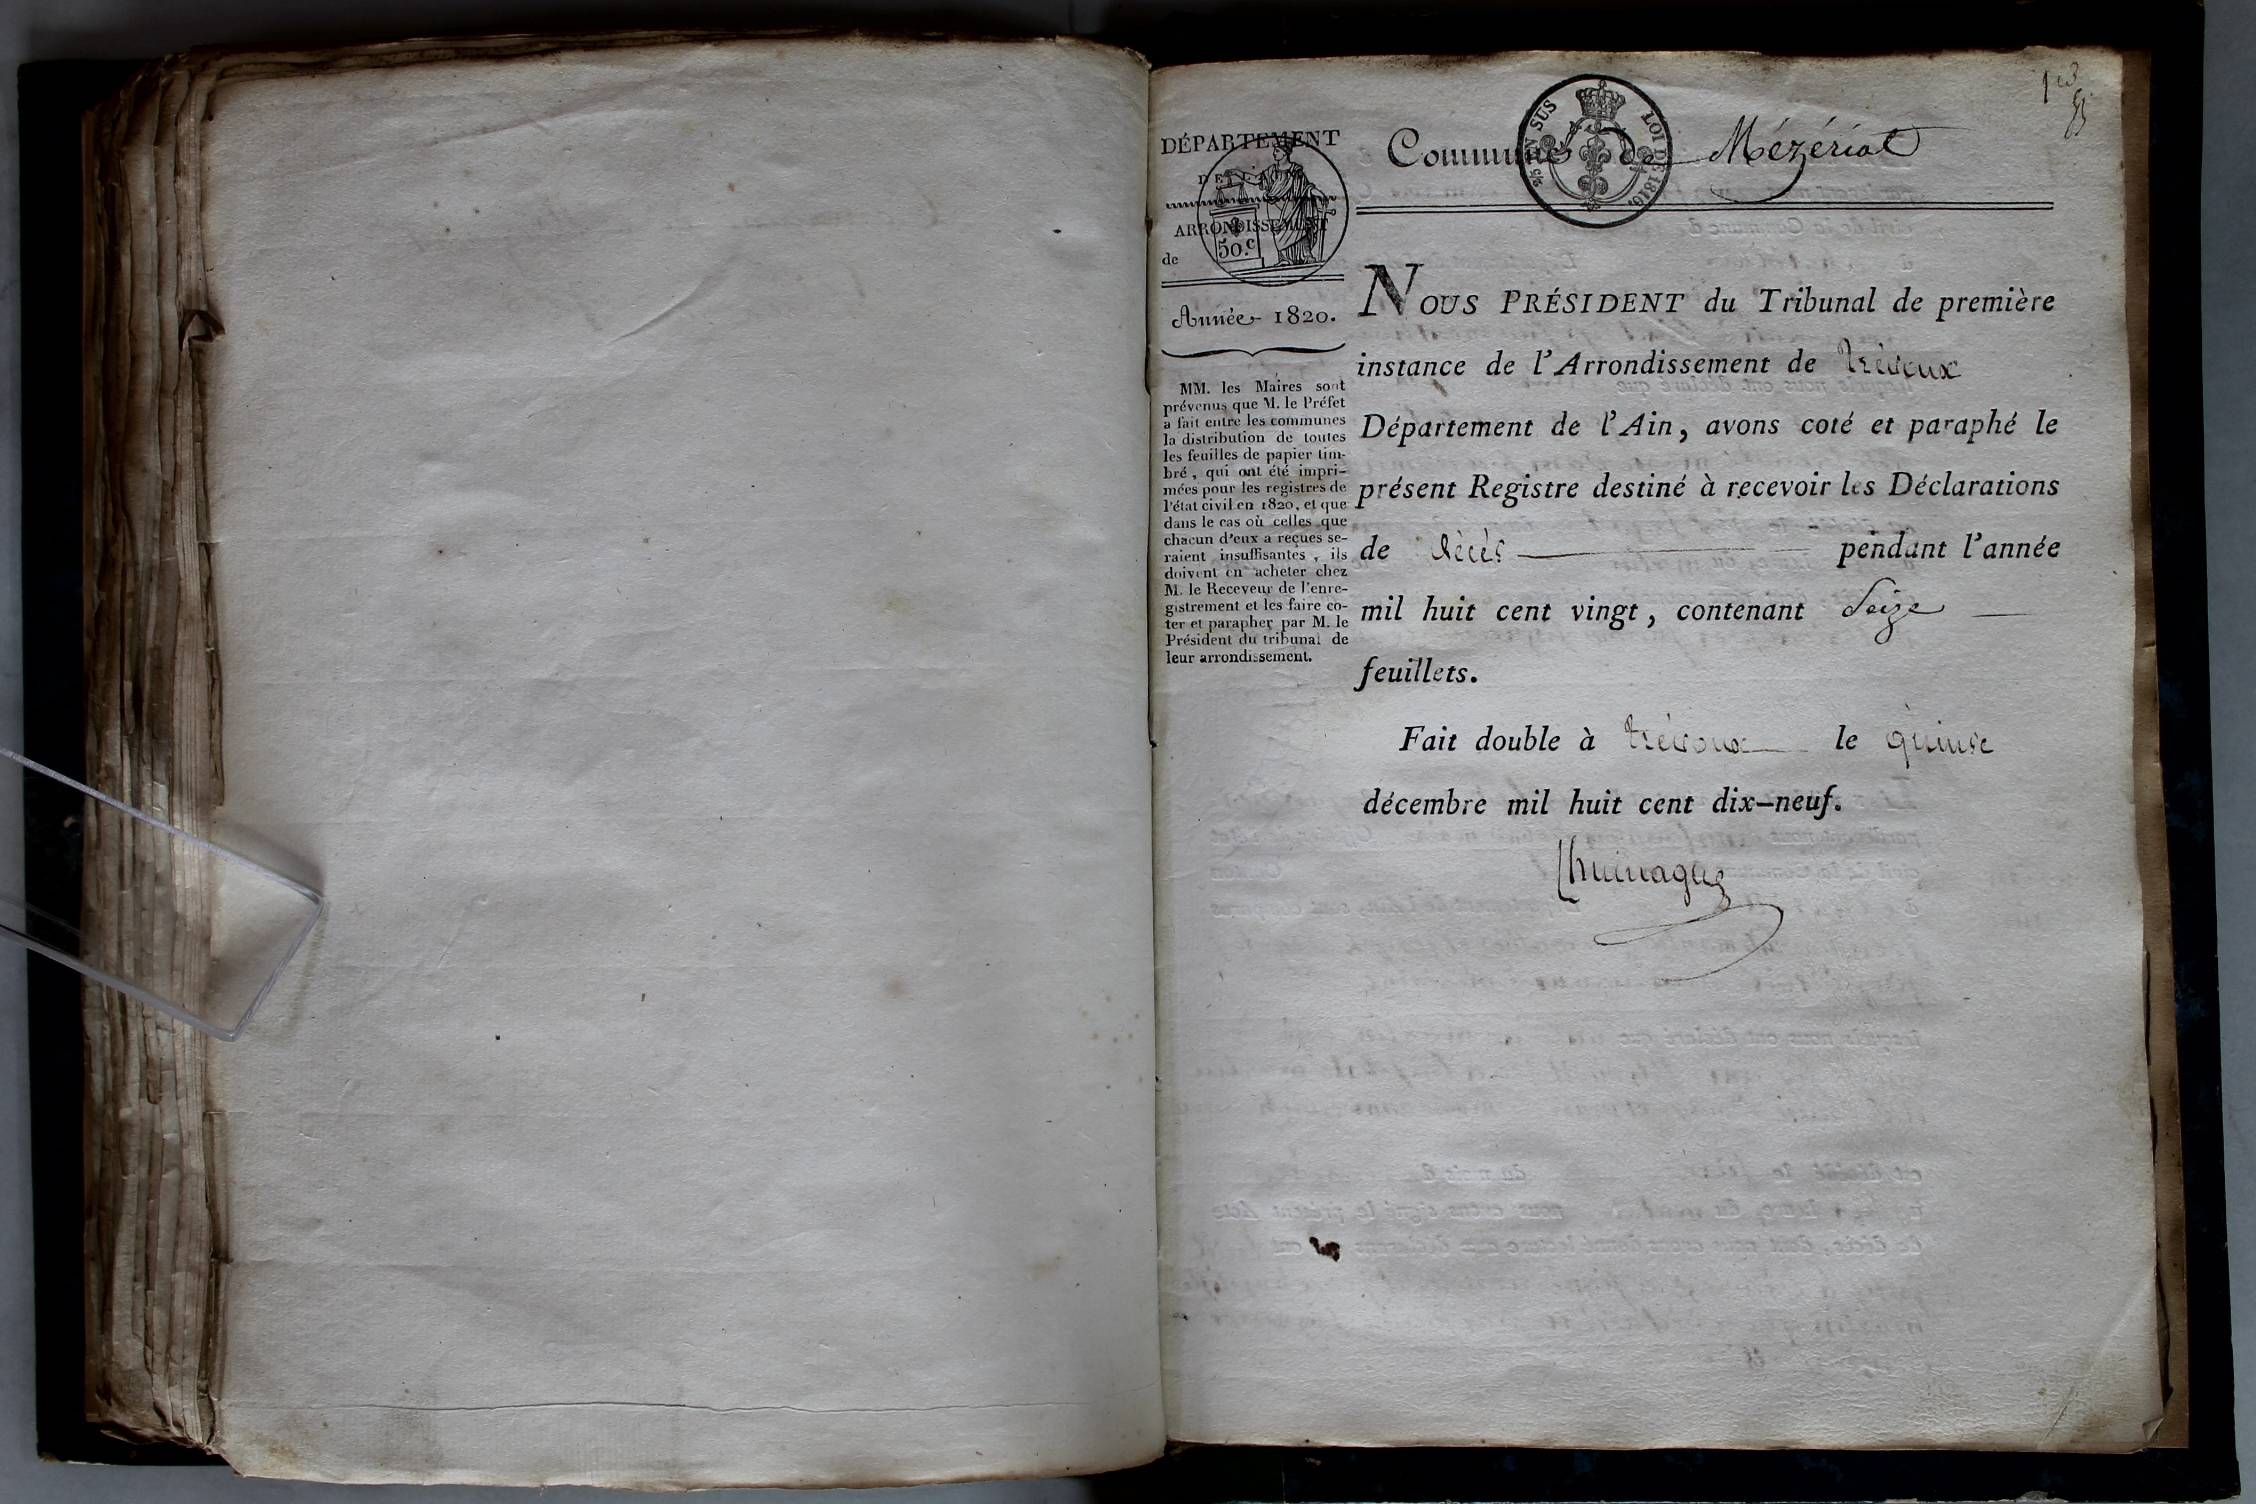 DÉPARTEMENT
DE L'AIN
ARRONDISSEMENT
de
50.c
Année 1820.
MM. les Maires sont
prévenus que M. le Préfet
a fait entre les communes
la distribution de toutes
les feuilles de papier tim-
bré, qui ont été impri-
mées pour les registres de
l'état civil en 1820, et que
dans le cas où celles que
chacun d'eux a reçues se-
raient insuffisantes, ils
doivent en acheter chez
M. le Receveur de l'enre-
gistrement et les faire co-
ter et parapher par M. le
Président du tribunal de
leur arrondissement.
EN SUS LOI DE 1816.
Commune de Mézériat
NOUS PRÉSIDENT du Tribunal de première
instance de l'Arrondissement de trévoux
Département de l'Ain, avons coté et paraphé le
présent Registre destiné à recevoir les Déclarations
de décès pendant l'année
mil huit cent vingt, contenant Seize
feuillets.
Fait double à trévoux le quinze
décembre mil huit cent dix-neuf.